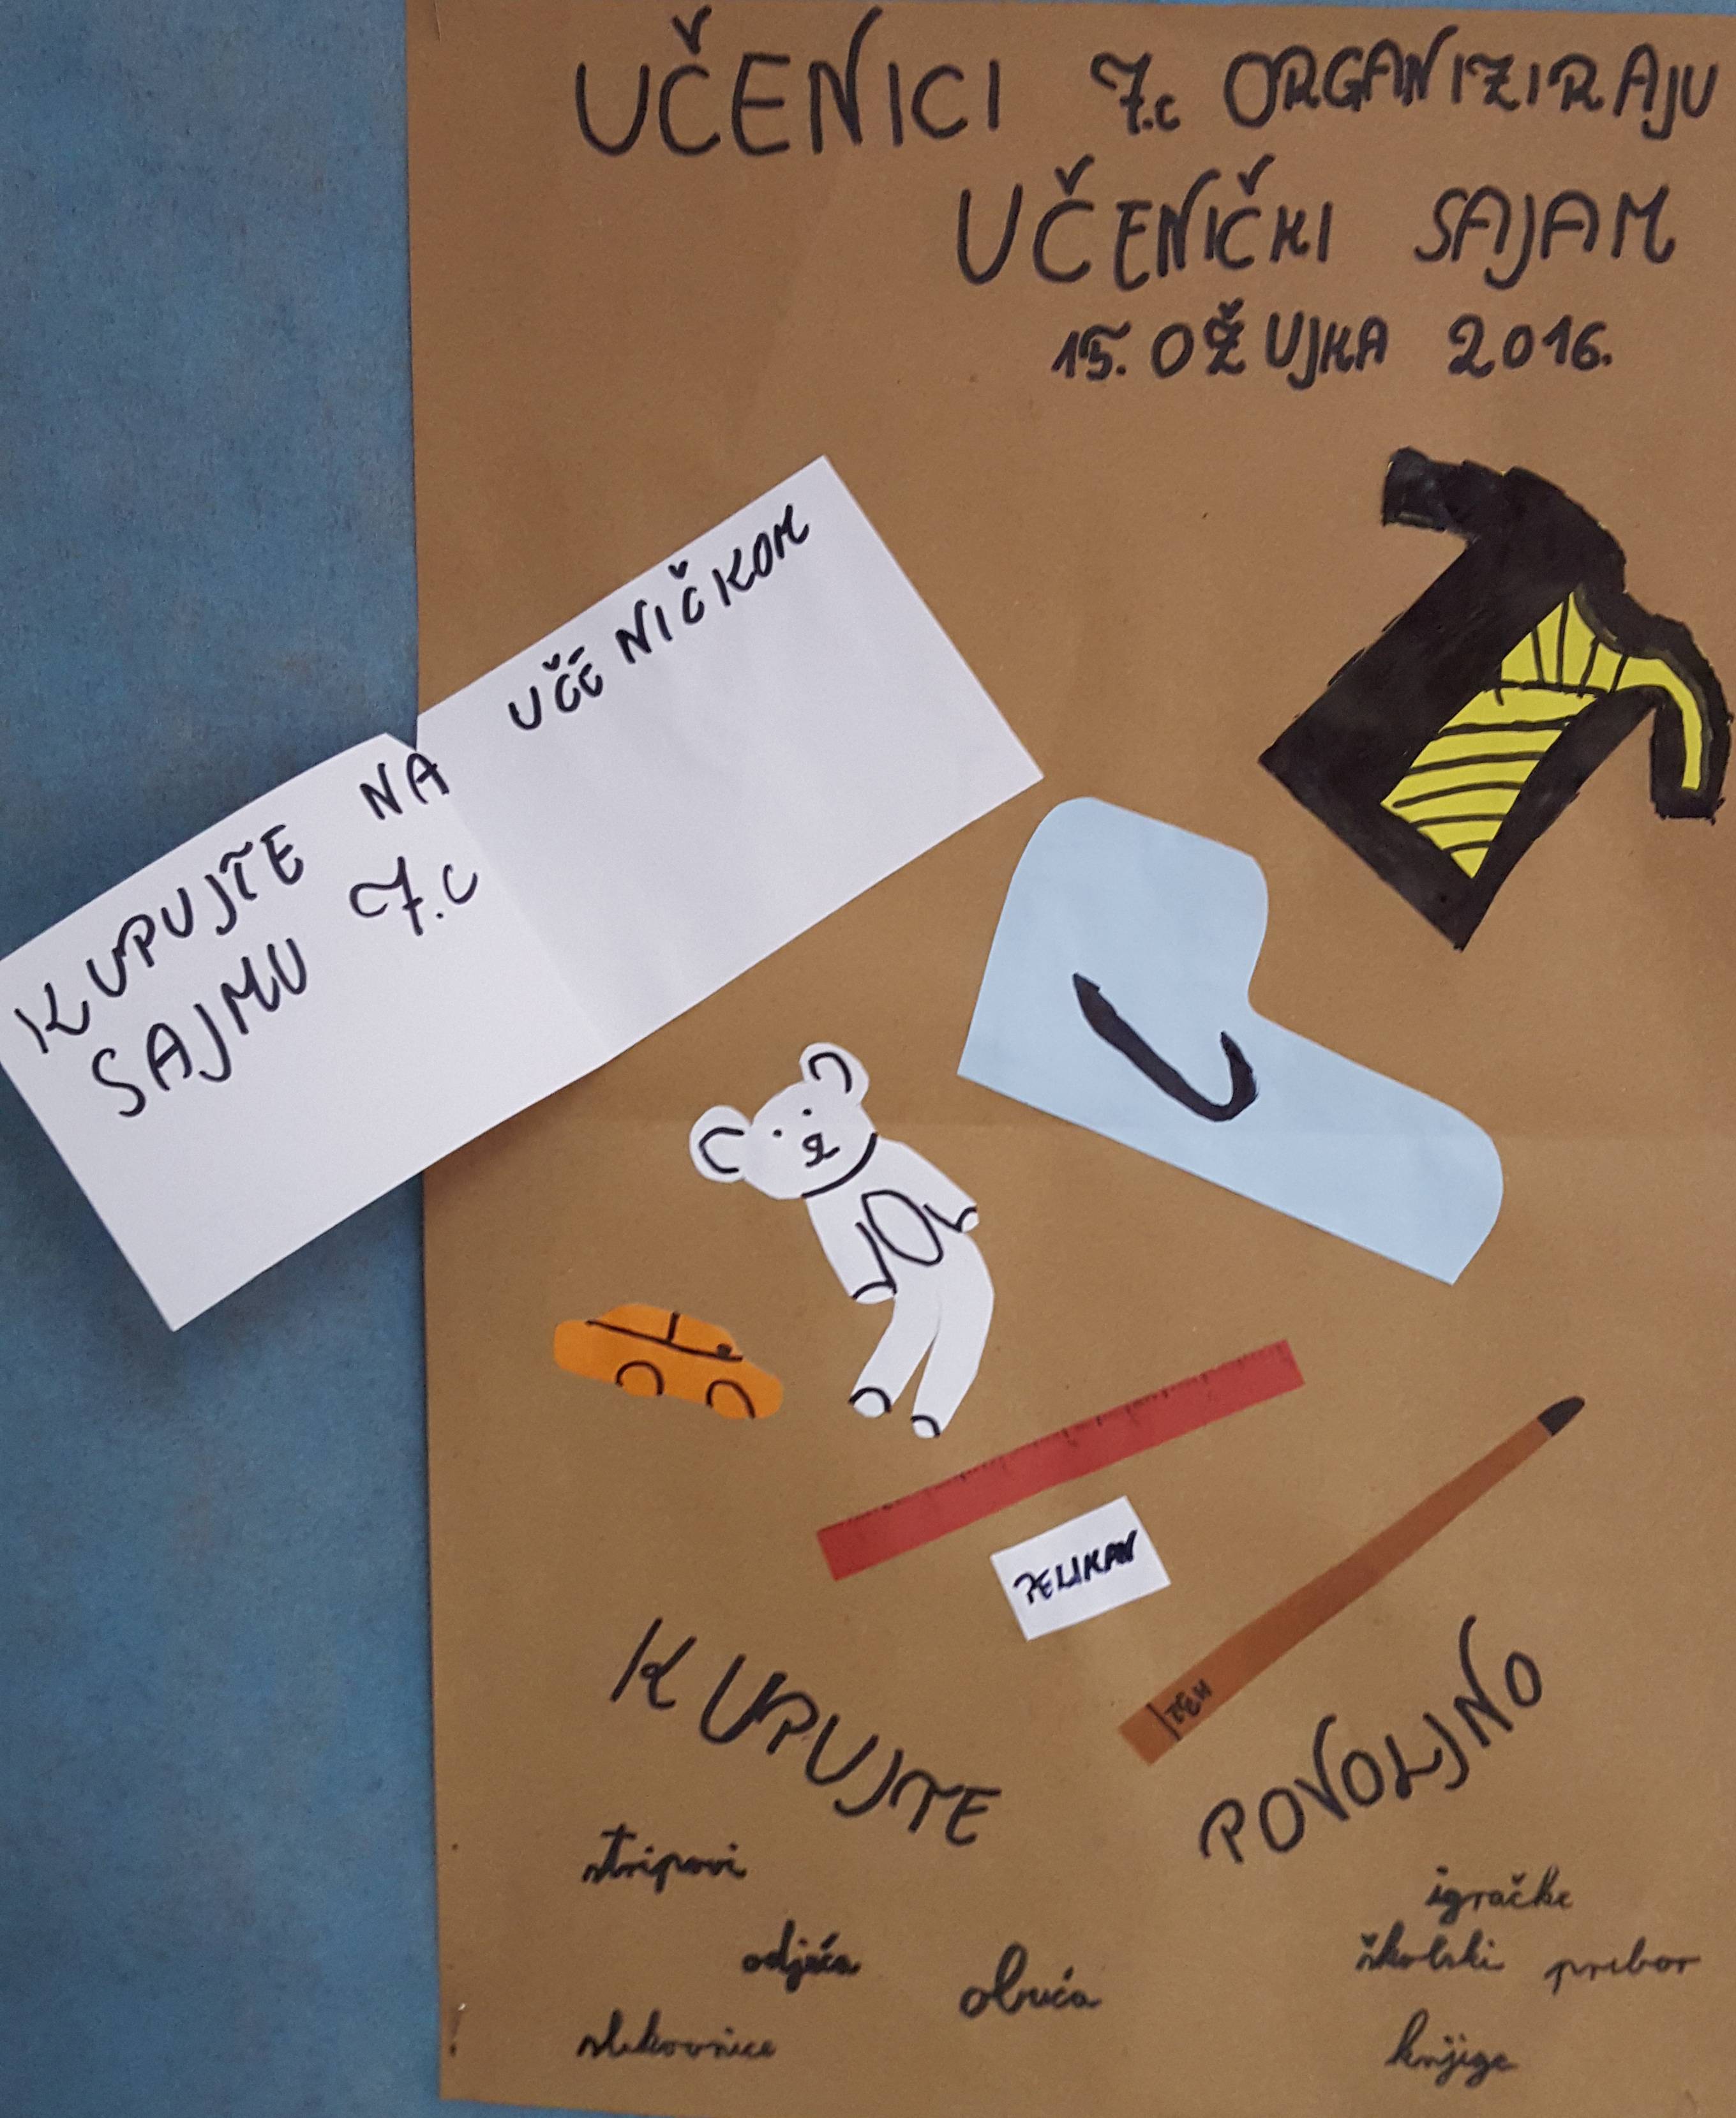 UČENICI 7.c ORGANIZIRAJU
UČENIČKI SAJAM
15. OŽUJKA 2016.
KUPUJTE NA UČENIČKOM
SAJMU 7.c
PELIKAN
KUPUJTE POVOLJNO
stripovi
igračke
odjeća
obuća
školski pribor
slikovnice
knjige